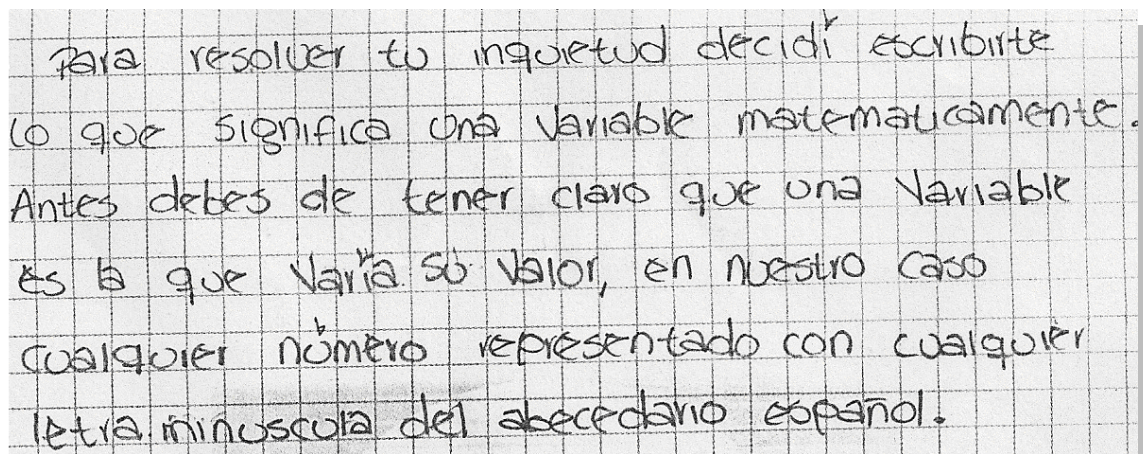 Para resolver tu inquietud decidí escribirte
lo que significa una variable matematicamente.
Antes debes de tener claro que una variable
es la que varía su valor, en nuestro caso
cualquier número representado con cualquier
letra minuscula del abecedario español.